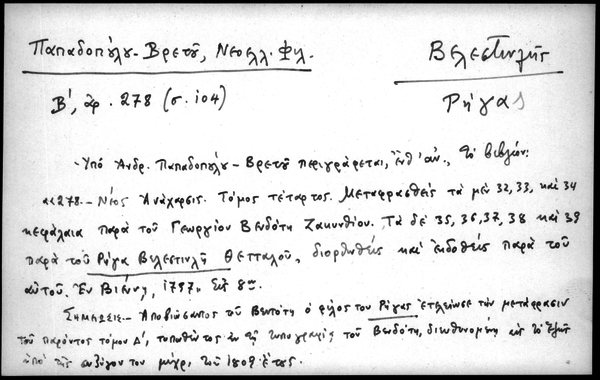 Παπαδοπούλου-Βρετοῦ, Νεοελλ. Φιλ.
Βελεστινλῆς
Β', ἀρ. 278 (σ. 104)
Ρήγας
Ὑπό Ἀνδρ. Παπαδοπούλου-Βρετοῦ περιγράφεται, ἔνθ' ἀν., τό βιβλίον:
«278.- Νέος Ἀνάχαρσις. Τόμος τέταρτος. Μεταφρασθείς τά μέν 32, 33, καί 34
κεφάλαια παρά τοῦ Γεωργίου Βενδότη Ζακυνθίου. Τά δέ 35, 36, 37, 38 καί 39
παρά τοῦ Ρήγα Βελεστινλῆ Θετταλοῦ, διορθωθείς καί ἐκδοθείς παρά τοῦ
αὐτοῦ. Ἐν Βιέννῃ, 1797, Εἰς 8ον
Σημείωσις.- Ἀποβιώσαντος τοῦ Βενδότη ὁ φίλος του Ρήγας ἐτελείωσε τήν μετάφρασιν
τοῦ παρόντος τόμου Δ', τυπωθέντος ἐν τῇ τυπογραφίᾳ τοῦ Βενδότη, διευθυνομένῃ εἰς τό ἑξῆς
ὑπό τῆς συζύγου του μέχρι τοῦ 1809 ἔτους.